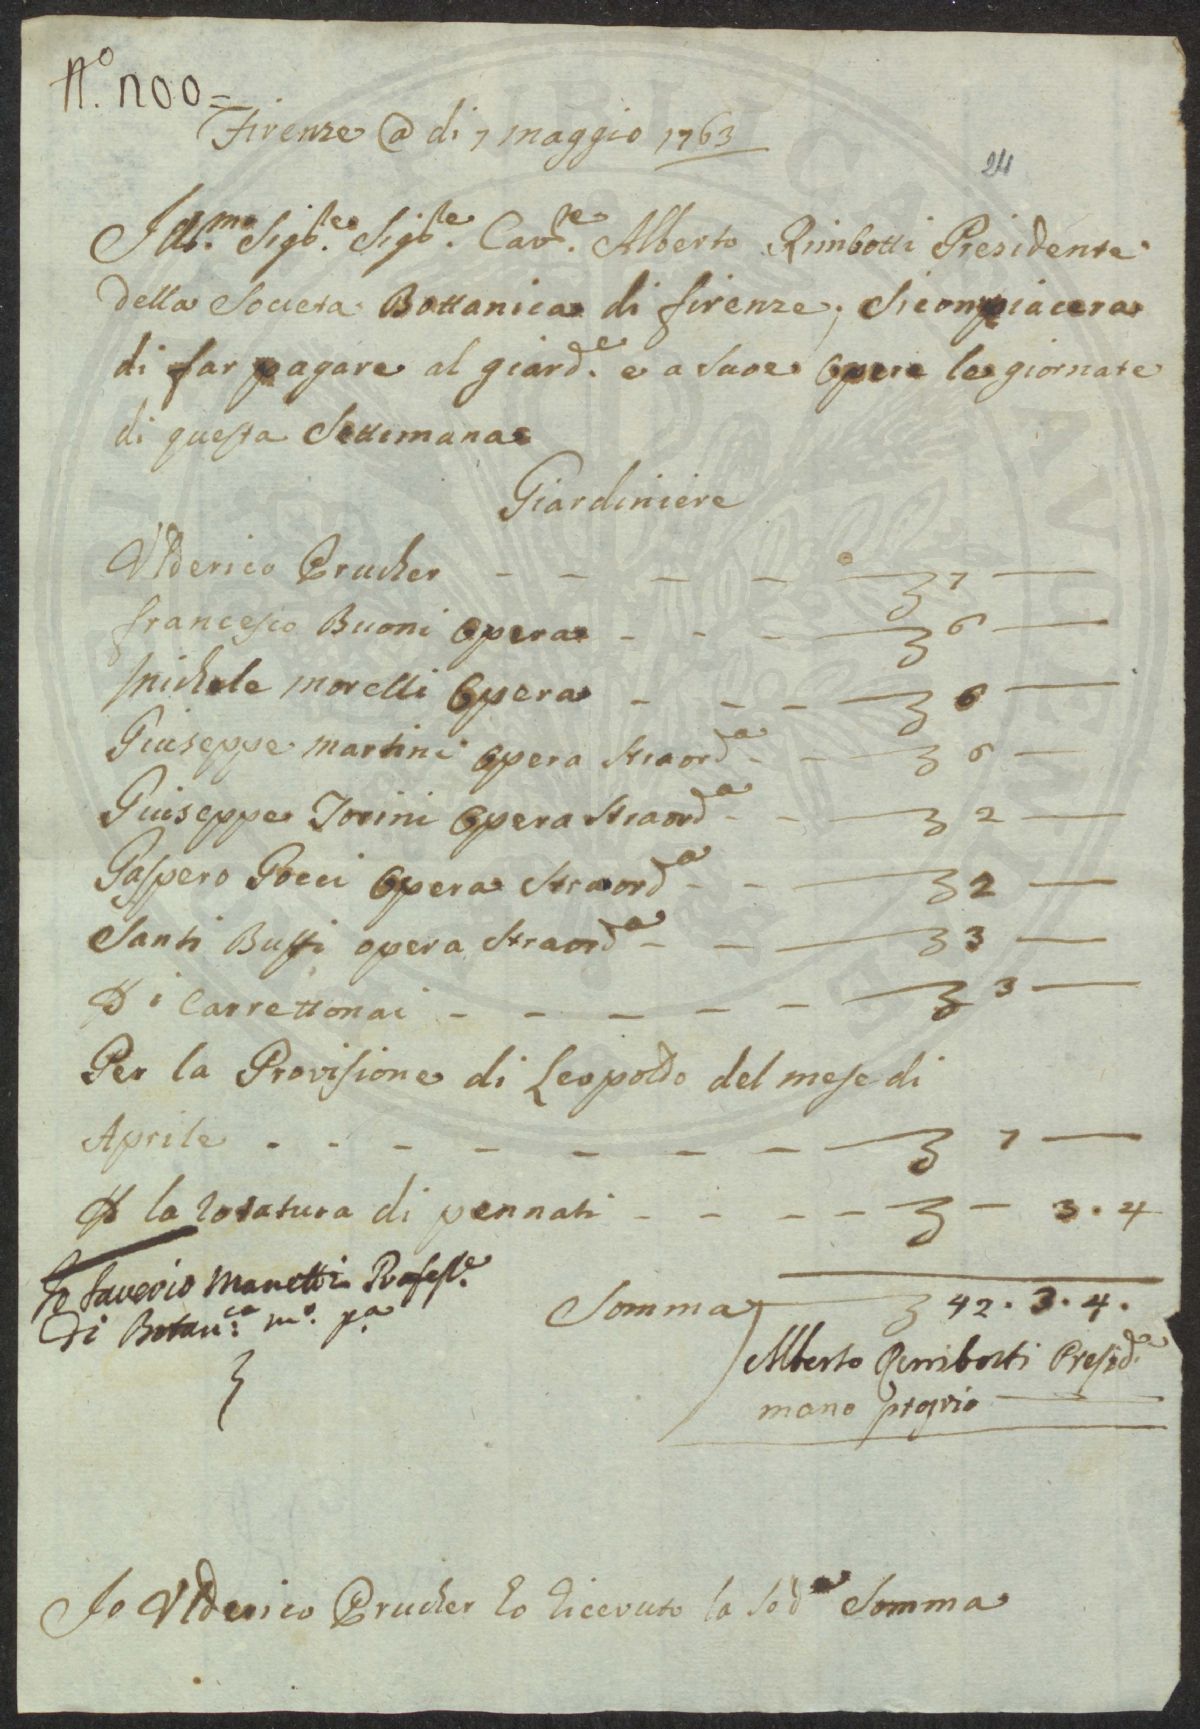 N.º 200=
Firenze @ di 7 maggio 1763
24
Ill.mo Sig.re Sig.re Cav.re Alberto Rimbotti Presidente
della Societa Bottanica di firenze, Si conpiacera
di far pagare al giard.e e a Sue Opere le giornate
di questa Settimana
Giardiniere
Vlderico Prucker - - - - 7 —
francesco Buoni Opera - - - 6 —
Michele morelli Opera - - - 6 —
Giuseppe martini opera Straord.a - - 6 —
Giuseppe Torini Opera Straord.a - - 2 —
Gaspero Gocci Opera Straord.a - - 2 —
Santi Bussi opera Straord.a - - 3 —
P i Carrettonai - - - - - 3 —
Per la Provisione di Leopoldo del mese di
Aprile - - - - - - - 7 —
P la rotatura di pennati - - - - - 3.4
Io Saverio Manetti Profess.e
di Botan.ca m.o p.a
Somma 42.3.4.
Alberto Rimbotti Presid.e
mano proprio
Io Vlderico Prucker ho ricevuto la Sod.a Somma